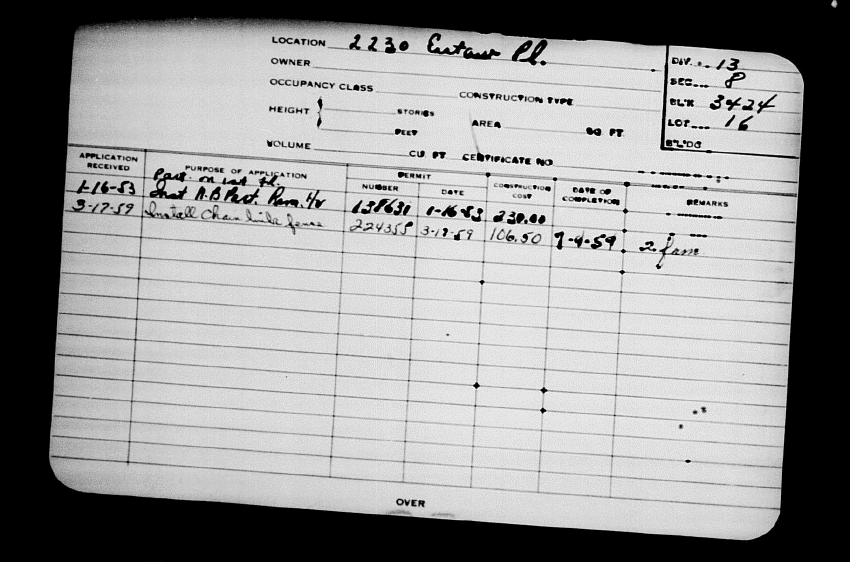 LOCATION 2230 Eutaw Pl.
DIV. 13
OWNER
SEC. 8
OCCUPANCY CLASS CONSTRUCTION TYPE
BLK 3424
HEIGHT STORIES
FEET
AREA SQ FT.
LOT 16
BLDG
VOLUME CU. FT. CERTIFICATE NO
APPLICATION RECEIVED
PURPOSE OF APPLICATION
PERMIT
NUMBER DATE
CONSTRUCTION COST
DATE OF COMPLETION
REMARKS
Part. on 1st fl.
1-16-53 Inst A.B Part. Rem. 138631 1-16-53 230.00
3-17-59 Install chain link fence 224358 3-17-59 106.50 7-9-59 2 fam
OVER